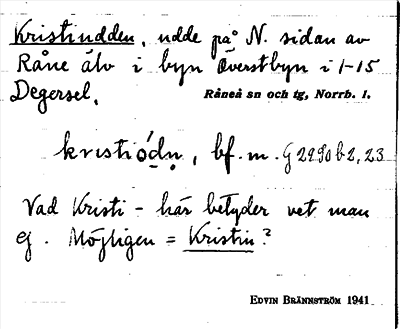 Kristiudden, udde på N. sidan av
Råne älv i byn Överstbyn i 1-15
Degersel.
Råneå sn och tg, Norrb. l.
kristiódn, bf. m. G2290b2,23
Vad Kristi- här betyder vet man
ej. Möjligen = Kristin?
EDVIN BRÄNNSTRÖM 1941